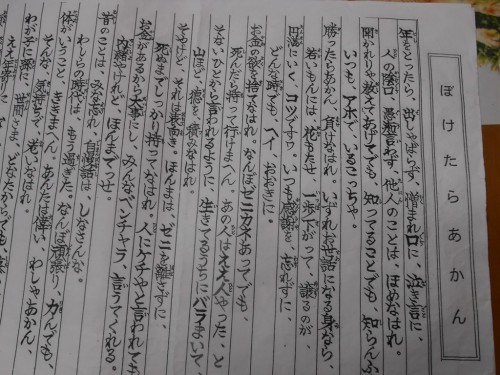 ぼけたらあかん
年をとったら、出しゃばらず、憎まれ口に、泣き言に、
人の陰口、愚痴言わず、他人のことは、ほめなはれ。
聞かれりゃ教えてあげてでも、知ってることでも、知らんふり
いつも、アホで、いるこっちゃ。
勝ったらあかん、負けなはれ。いずれお世話になる身なら、
若いもんには花もたせ、一歩さがって、譲るのが
円満にいく、コツですワ。いつも感謝を、忘れずに、
どんな時でも、ヘイ おおきに。
お金の欲を捨てなはれ。なんぼゼニカネあってでも、
死んだら持って行けまへん。あの人はええ人やった、と
そないひとから言われるように、生きてるうちにバラまいて、
山ほど、徳を、積みなはれ。
そやけど、それは表向き。ほんまは、ゼニを離さずに、
死ぬまでしっかり持ってなはれ。人にケチやと言われても
お金があるから大事にし、みんなベンチャラ言うてくれる。
内緒やけれど、ほんまでっせ。
昔のことは、みな忘れ、自慢話は、しなさんな。
わしらの時代は、もう過ぎた。なんぼ頑張り、力んでも、
体がいうこと、ききまへん。あんたは偉い、わしゃあかん、
そんな気持ちで、若いなはれ。
わが子に孫に、世間さま、どなたからでも、
ええ年寄りに